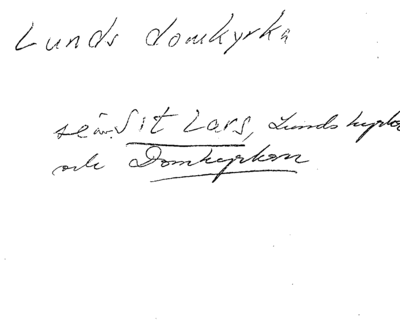 Lunds domkyrka
se äv. S:t Lars, Lunds kyrko
och Domkyrkan